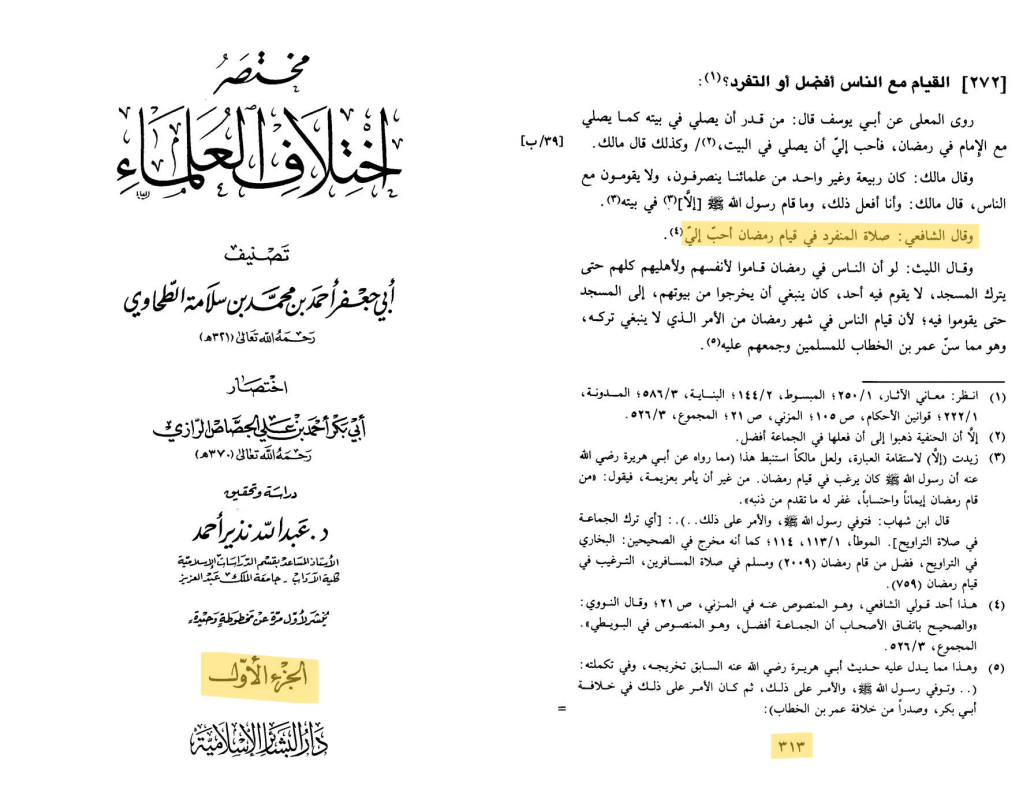 مختصر
اختلاف العلماء
تصنيف
أبي جعفر أحمد بن محمد بن سلامة الطحاوي
رحمه الله تعالى (٣٢١هـ)
اختصار
أبي بكر أحمد بن علي الجصاص الرازي
رحمه الله تعالى (٣٧٠هـ)
دراسة وتحقيق
د. عبد الله نذير أحمد
الأستاذ المساعد بقسم الدراسات الإسلامية
كلية الآداب - جامعة الملك عبد العزيز
ينشر لأول مرة عن مخطوطة وحيدة
الجزء الأول
دار البشائر الإسلامية
[٢٧٢] القيام مع الناس أفضل أو التفرد؟(١):
روى المعلى عن أبي يوسف قال: من قدر أن يصلي في بيته كما يصلي
مع الإمام في رمضان، فأحب إليّ أن يصلي في البيت،(٢)/ وكذلك قال مالك. [٣٩/ب]
وقال مالك: كان ربيعة وغير واحد من علمائنا ينصرفون، ولا يقومون مع
الناس، قال مالك: وأنا أفعل ذلك، وما قام رسول الله ﷺ [إلَّا](٣) في بيته(٣).
وقال الشافعي: صلاة المنفرد في قيام رمضان أحبّ إليّ(٤).
وقال الليث: لو أن الناس في رمضان قاموا لأنفسهم ولأهليهم كلهم حتى
يترك المسجد، لا يقوم فيه أحد، كان ينبغي أن يخرجوا من بيوتهم، إلى المسجد
حتى يقوموا فيه؛ لأن قيام الناس في شهر رمضان من الأمر الذي لا ينبغي تركه،
وهو مما سنّ عمر بن الخطاب للمسلمين وجمعهم عليه(٥).
(١) انظر: معاني الآثار، ٢٥٠/١؛ المبسوط، ١٤٤/٢؛ البناية، ٥٨٦/٣؛ المدونة،
٢٢٢/١؛ قوانين الأحكام، ص ١٠٥؛ المزني، ص ٢١؛ المجموع، ٥٢٦/٣.
(٢) إلَّا أن الحنفية ذهبوا إلى أن فعلها في الجماعة أفضل.
(٣) زيدت (إلَّا) لاستقامة العبارة، ولعل مالكاً استنبط هذا (مما رواه عن أبي هريرة رضي الله
عنه أن رسول الله ﷺ كان يرغب في قيام رمضان. من غير أن يأمر بعزيمة، فيقول: «من
قام رمضان إيماناً واحتساباً، غفر له ما تقدم من ذنبه».
قال ابن شهاب: فتوفي رسول الله ﷺ، والأمر على ذلك..).: [أي ترك الجماعة
في صلاة التراويح]. الموطأ، ١١٣/١، ١١٤؛ كما أنه مخرج في الصحيحين: البخاري
في التراويح، فضل من قام رمضان (٢٠٠٩) ومسلم في صلاة المسافرين، الترغيب في
قيام رمضان (٧٥٩).
(٤) هذا أحد قولي الشافعي، وهو المنصوص عنه في المزني، ص ٢١؛ وقال النووي:
«والصحيح باتفاق الأصحاب أن الجماعة أفضل، وهو المنصوص في البويطي».
المجموع، ٥٢٦/٣.
(٥) وهذا مما يدل عليه حديث أبي هريرة رضي الله عنه السابق تخريجه، وفي تكملته:
(.. وتوفي رسول الله ﷺ، والأمر على ذلك، ثم كان الأمر على ذلك في خلافة
أبي بكر، وصدراً من خلافة عمر بن الخطاب): =
٣١٣